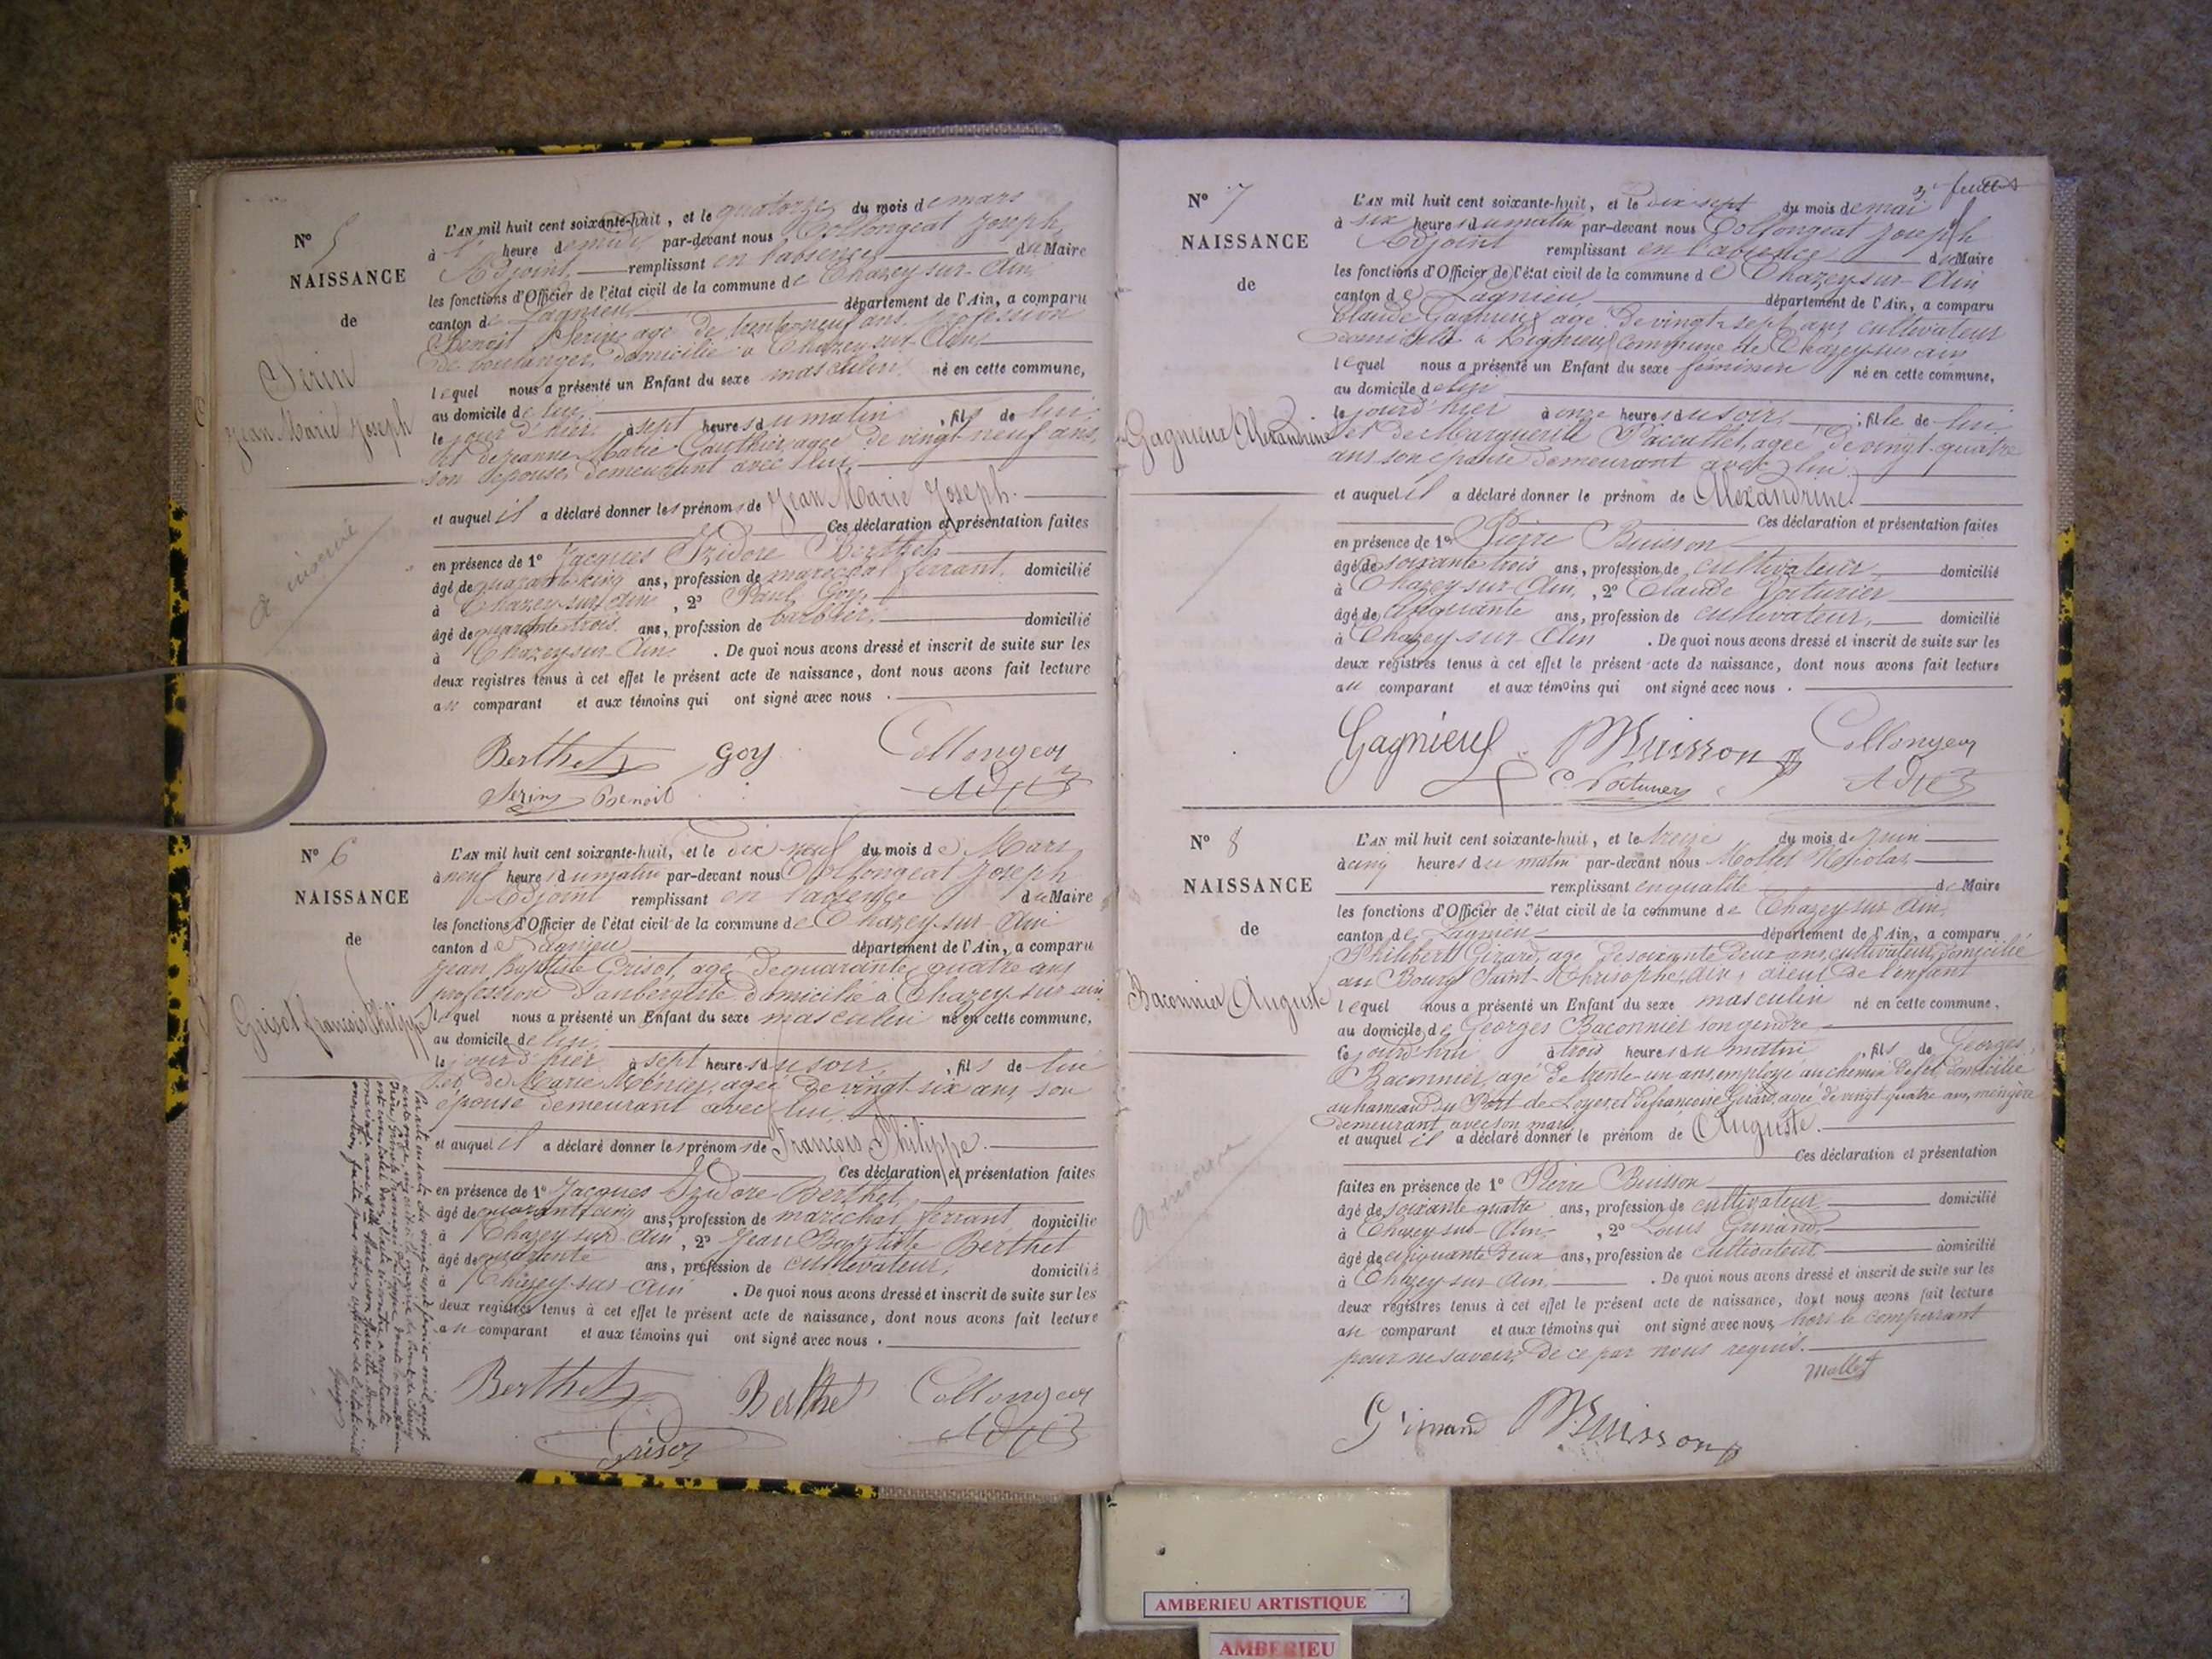 N° 5
NAISSANCE
de
Serin
Jean Marie Joseph
a inscrire
L'AN mil huit cent soixante-huit, et le quatorze du mois de mars
à l' heure de midi par-devant nous Collongeat Joseph
Adjoint remplissant en l'absence du Maire
les fonctions d'Officier de l'état civil de la commune de Chazey-sur-Ain
canton de Lagnieu département de l'Ain, a comparu
Benoit Serin age de trente-neuf ans profession
de boulanger, domicilié à Chazey-sur-Ain
lequel nous a présenté un Enfant du sexe masculin né en cette commune,
au domicile de lui,
le jour d'hier à sept heures du matin, fils de lui
et de Jeanne Marie Gauthier, agée de vingt-neuf ans,
son épouse, demeurant avec lui,
et auquel il a déclaré donner les prénoms de Jean Marie Joseph.
Ces déclaration et présentation faites
en présence de 1° Jacques Izidore Berthet
âgé de quarante cinq ans, profession de maréchal ferrant, domicilié
à Chazey-sur-Ain, 2° Paul Goy
âgé de quarante trois ans, profession de barbier, domicilié
à Chazey-sur-Ain. De quoi nous avons dressé et inscrit de suite sur les
deux registres tenus à cet effet le présent acte de naissance, dont nous avons fait lecture
au comparant et aux témoins qui ont signé avec nous.
Berthet Goy Collongeat
Serin Benoit Adjt
N° 6
NAISSANCE
de
Grisot François Philippe
L'AN mil huit cent soixante-huit, et le dix neuf du mois de Mars
à neuf heures du matin par-devant nous Collongeat Joseph
Adjoint remplissant en l'absence du Maire
les fonctions d'Officier de l'état civil de la commune de Chazey-sur-Ain
canton de Lagnieu département de l'Ain, a comparu
Jean Baptiste Grisot, agé de quarante quatre ans
profession d'aubergiste domicilié à Chazey-sur-ain
lequel nous a présenté un Enfant du sexe masculin né en cette commune,
au domicile de lui,
le jour d'hier à sept heures du soir, fils de lui
et de Marie agée de vingt six ans, son
épouse demeurant avec lui
et auquel il a déclaré donner les prénoms de François Philippe.
Ces déclaration et présentation faites
en présence de 1° Jacques Izidore Berthet
âgé de quarante cinq ans, profession de maréchal ferrant domicilié
à Chazey-sur-Ain, 2° Jean Baptiste Berthet
âgé de quarante ans, profession de cultivateur, domicilié
à Chazey-sur-Ain. De quoi nous avons dressé et inscrit de suite sur les
deux registres tenus à cet effet le présent acte de naissance, dont nous avons fait lecture
au comparant et aux témoins qui ont signé avec nous.
Berthet Berthet Collongeat
Grisot Adjt
3e feuillet
N° 7
NAISSANCE
de
Gagnieux Alexandrine
L'AN mil huit cent soixante-huit, et le dix sept du mois de mai
à six heures du matin par-devant nous Collongeat Joseph
Adjoint remplissant en l'absence du Maire
les fonctions d'Officier de l'état civil de la commune de Chazey-sur-Ain
canton de Lagnieu département de l'Ain, a comparu
Claude Gagnieux age de vingt-sept ans cultivateur
domicilié à Rignieux commune de Chazey-sur-ain
lequel nous a présenté un Enfant du sexe féminin né en cette commune,
au domicile de lui
le jourd'hier à onze heures du soir, fille de lui
et de Marguerite agée de vingt-quatre
ans, son épouse demeurant avec lui
et auquel il a déclaré donner le prénom de Alexandrine.
Ces déclaration et présentation faites
en présence de 1° Pierre Buisson
âgé de soixante trois ans, profession de cultivateur domicilié
à Chazey-sur-Ain, 2° Claude Voiturier
âgé de cinquante ans, profession de cultivateur, domicilié
à Chazey-sur-Ain. De quoi nous avons dressé et inscrit de suite sur les
deux registres tenus à cet effet le présent acte de naissance, dont nous avons fait lecture
au comparant et aux témoins qui ont signé avec nous.
Gagnieux Buisson Collongeat
C. Voiturier Adjt
N° 8
NAISSANCE
de
Baconnier Auguste
a inscrire
L'AN mil huit cent soixante-huit, et le treize du mois de Juin
à cinq heures du matin par-devant nous Mollet Nicolas
remplissant en qualité de Maire
les fonctions d'Officier de l'état civil de la commune de Chazey sur Ain,
canton de Lagnieu département de l'Ain, a comparu
Philibert Girard, age de soixante deux ans, cultivateur, domicilié
au Bourg Saint-Christophe, Ain, aïeul de l'enfant
lequel nous a présenté un Enfant du sexe masculin né en cette commune,
au domicile de Georges Baconnier son gendre
le jourd'hui à trois heures du matin, fils de Georges
Baconnier, agé de trente-un ans, employé au chemin de fer, domicilié
au hameau du Port de Loyes, et de françoise Girard, agée de vingt quatre ans, ménagère
demeurant avec son mari
et auquel il a déclaré donner le prénom de Auguste.
Ces déclaration et présentation
faites en présence de 1° Pierre Buisson
âgé de soixante quatre ans, profession de cultivateur domicilié
à Chazey-sur-Ain, 2° Louis Gimand,
âgé de cinquante deux ans, profession de cultivateur domicilié
à Chazey-sur-Ain. De quoi nous avons dressé et inscrit de suite sur les
deux registres tenus à cet effet le présent acte de naissance, dont nous avons fait lecture
au comparant et aux témoins qui ont signé avec nous, hors le comparant
pour ne savoir, de ce par nous requis.
Mollet
Gimand Buisson
AMBERIEU ARTISTIQUE
AMBERIEU